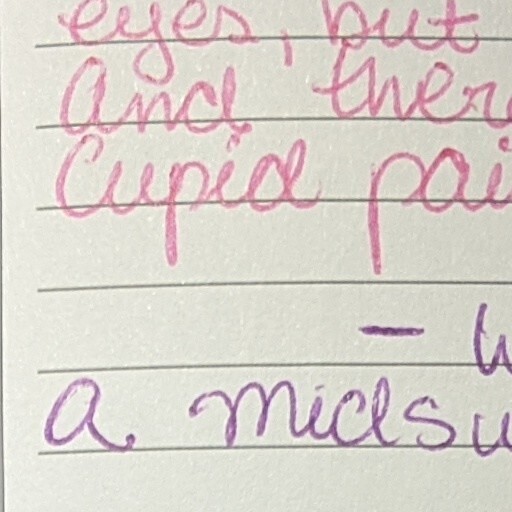 eyes, but
And ther
Cupid pai
- W
a midsu